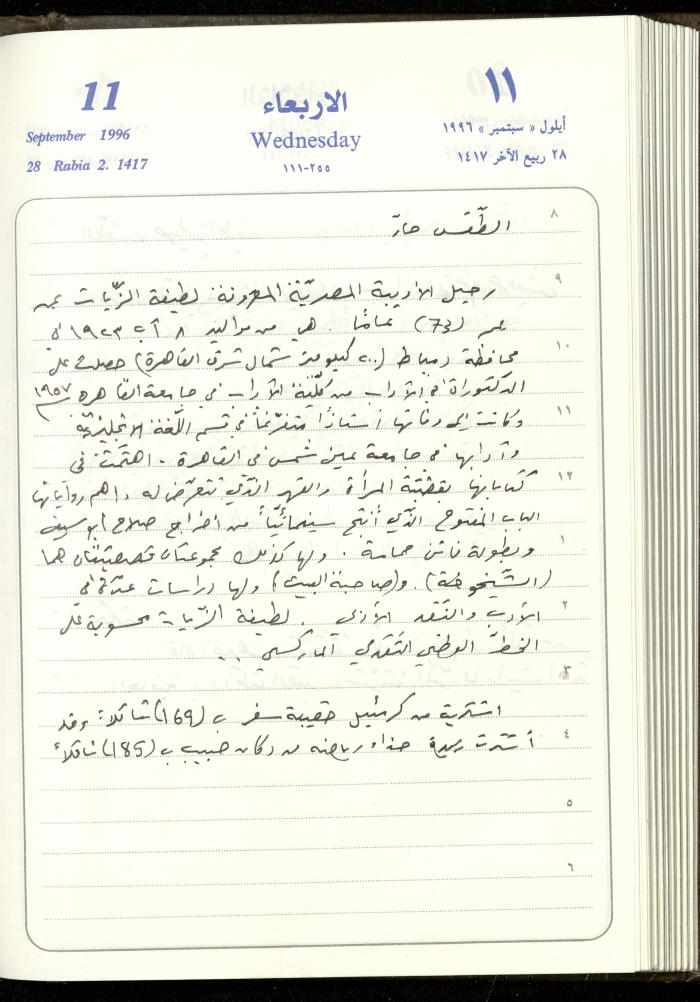 11
September 1996
28 Rabia 2. 1417
الاربعاء
Wednesday
٢٥٥-١١١
١١
أيلول « سبتمبر » ١٩٩٦
٢٨ ربيع الآخر ١٤١٧
٨
الطّقس حارّ
٩
رحيل الأديبة المصريّة المعروفة لطيفة الزّيّات عن
عمر (73) عامًا. هي من مواليد ٨ آب ١٩٢٣ في
١٠
محافظة دمياط (٢٠٠ كيلومتر شمال شرق القاهرة) حصلت على
الدكتوراة في الآداب من كلّيّة الآداب في جامعة القاهره ١٩٥٧
١١
وكانت إلى وفاتها أستاذًا متفرّغًا في قسم اللّغة الانجليزيّة
وآدابها في جامعة عين شمس في القاهرة. اهتمّت في
١٢
كتاباتها بقضيّة المرأة والقهر الّذي تتعرّض له وأهم رواياتها
الباب المفتوح الّذي أنتج سينمائيًّا من اخراج صلاح أبو سيف
١
وبطولة فاتن حمامة. ولها كذلك مجموعتان قصصيّتان هما
(الشّيخوخة). و(صاحبة البيت) ولها دراسات عدّة في
٢
الأدب والنّقد الأدبي. لطيفة الزّيات محسوبة على
الخطّ الوطني التّقدمي الماركسي..
٣
اشتريت من كرمئيل حقيبة سفر ب (169) شاقلاً وقد
٤
اشترت حذاء رياضه من دكان حبيب ب (185) شاقلاً
٥
٦